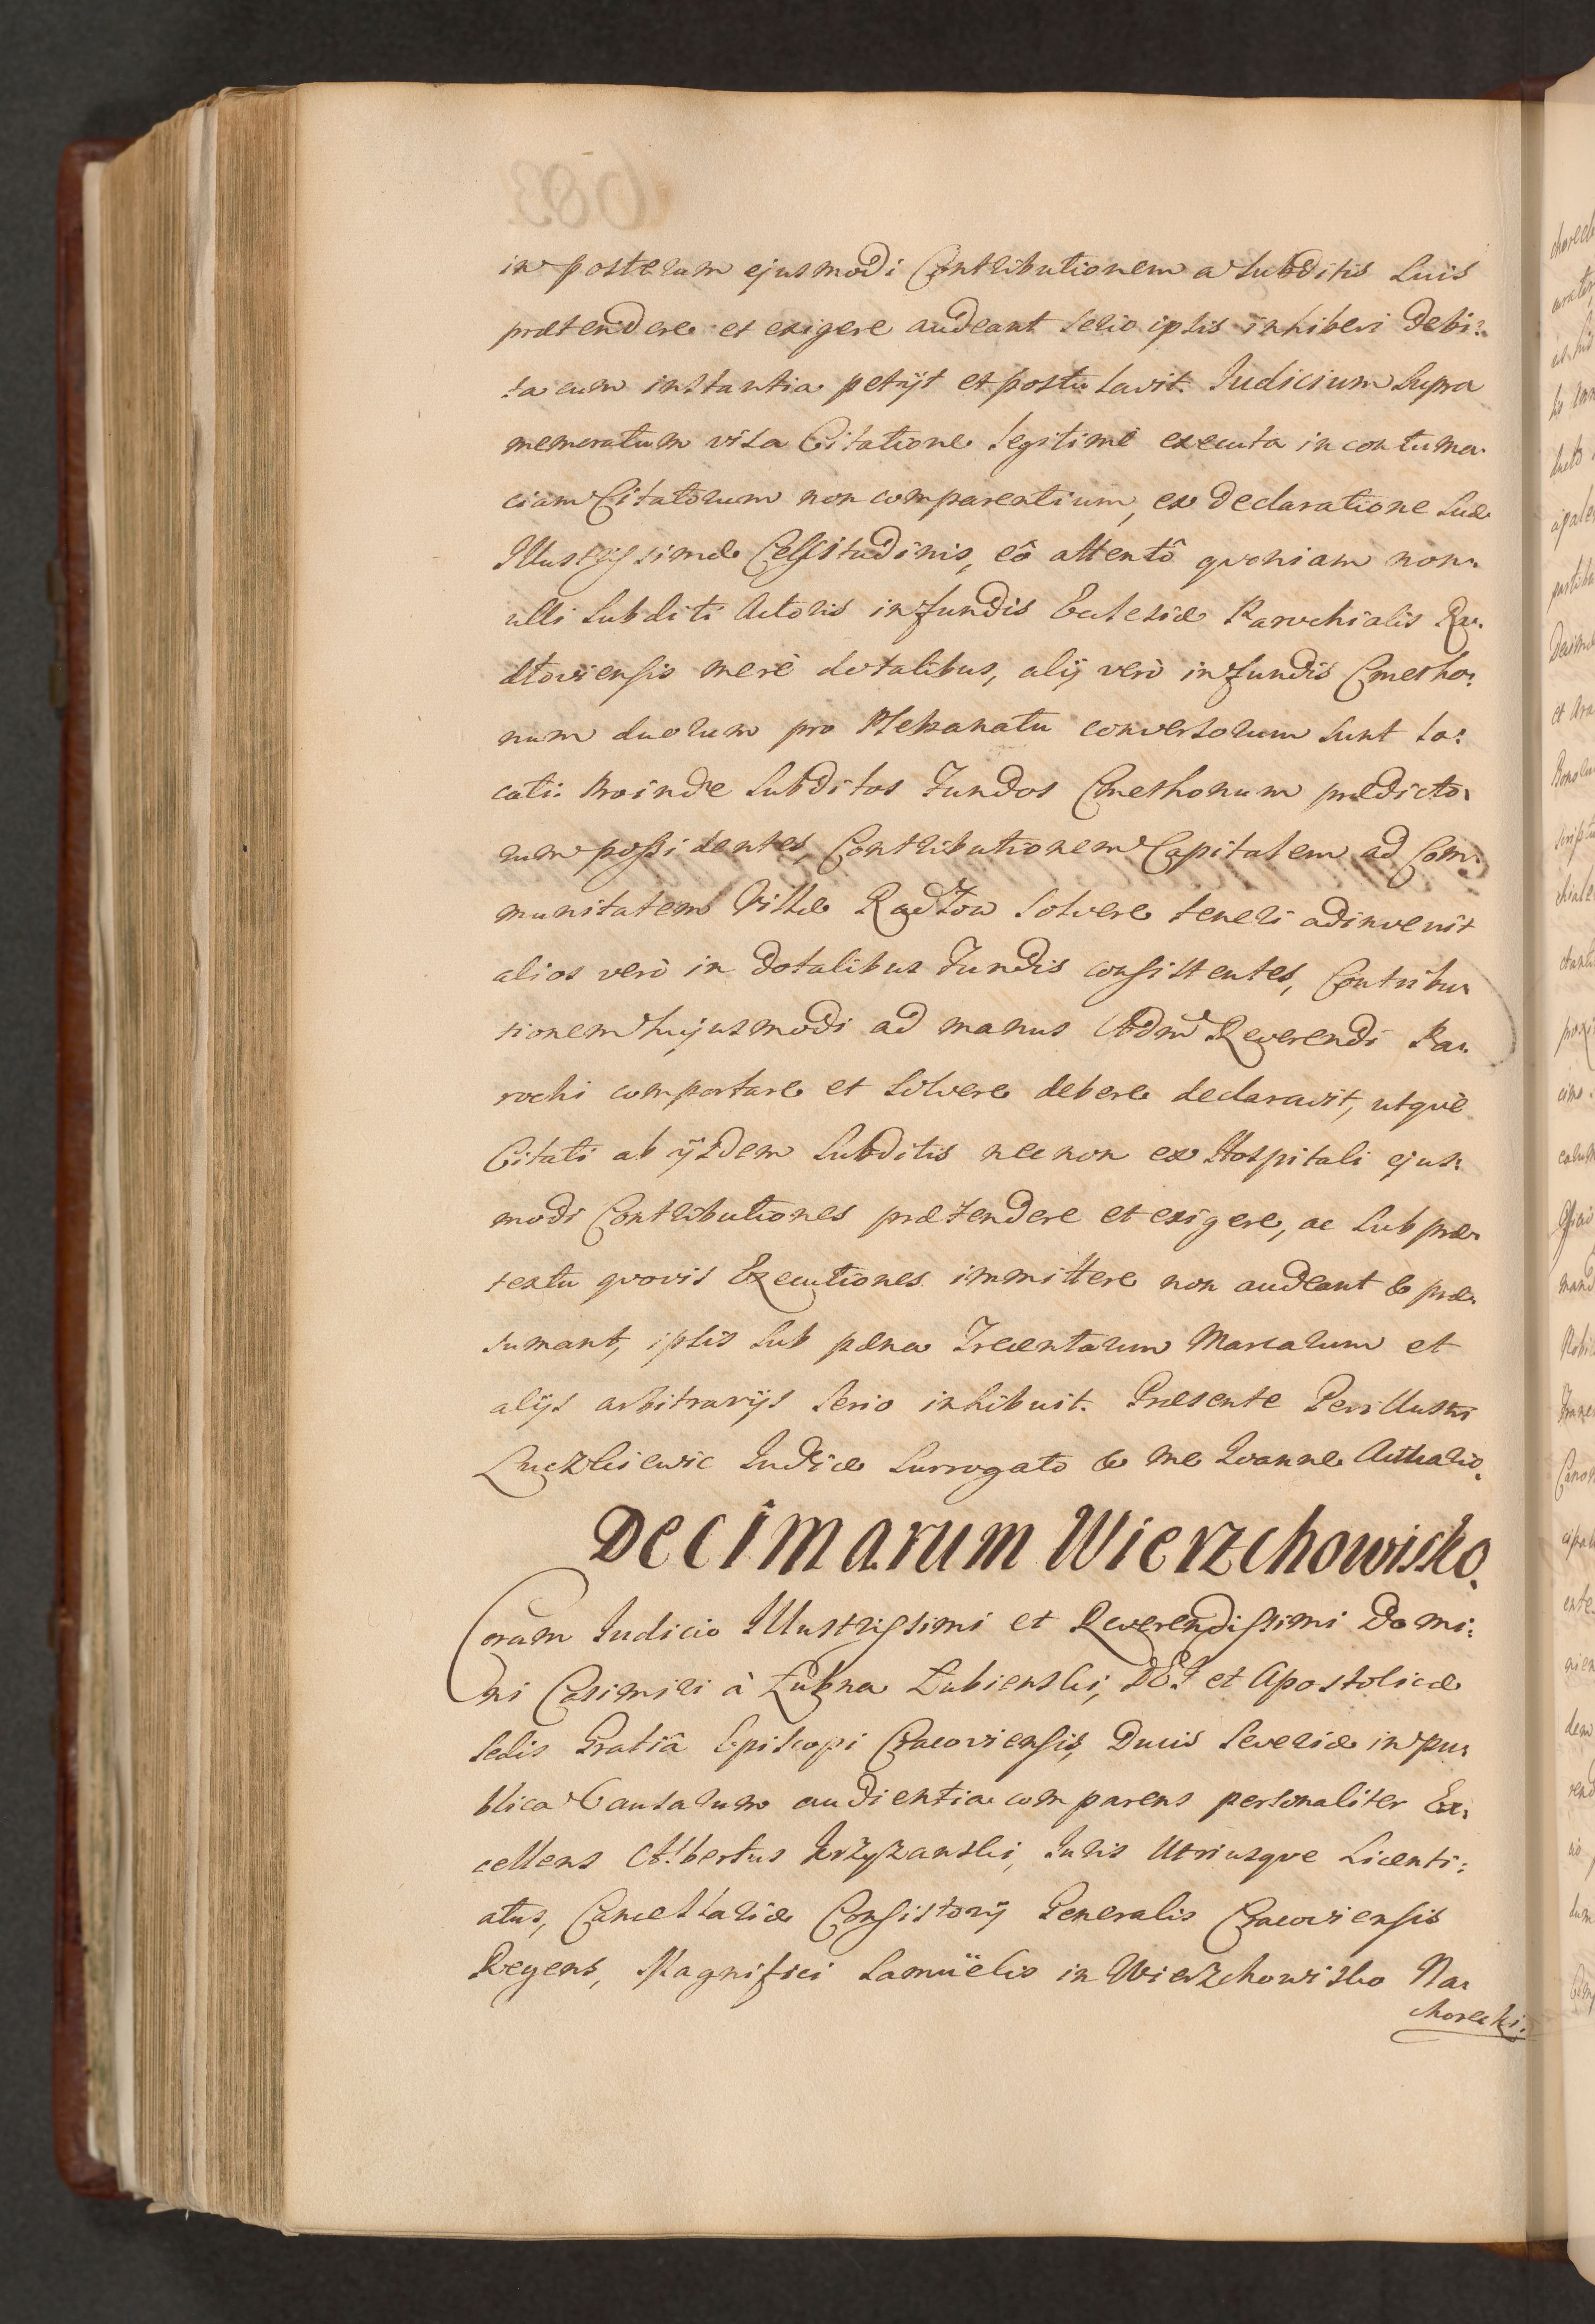 in posterum ejusmodi Contributionem a subditis suis
prætendere et exigere audeant serio ipsis inhiberi debi:
ta cum instantia petijt et postulavit. Judicium supra
memoratum visa Citatione legitimè executa in contuma:
ciam Citatorum non comparentium, ex declaratione suæ
Illustrissimæ Celsitudinis, eô attentô quoniam non:
ulli subditi Actoris in fundis Ecclesiæ Parochialis Ra:
dłoviensis merè dotalibus, alij verò in fundis Cmetho:
num duorum pro Plebanatu conversorum sunt lo:
cati: Proinde subditos Fundos Cmethonum prædicto:
rum possidentes, Contributionem Capitalem ad Com:
munitatem Villæ Radłow solvere teneri adinvenit
alios verò in dotalibus Fundis consistentes, Contribu:
tionem hujusmodi ad manus Admd Reverendi Pa:
rochi comportare et solvere debere declaravit, utquè
Citati ab ijsdem subditis necnon ex Hospitali ejus:
modi Contributiones prætendere et exigere, ac sub præ:
textu quovis Executiones immittere non audeant & præ:
sumant, ipsis sub pæna Trecentarum Marcarum et
alijs arbitrarijs serio inhibuit. Præsente Perillustri
Judice Surrogato & me Joanne Actuario.
Decimarum Wierzchowisko.
Coram Judicio Illustrissimi et Reverendissimi Domi:
ni Casimiri à Łubna Łubienski, DEI et Apostolicæ
Sedis Gratiâ Episcopi Cracoviensis, Ducis Severiæ in pu:
blica Causarum audientia comparens personaliter Ex:
cellens Albertus Krzyzanski, Juris Utriusque Licenti:
atus, Cancellariæ Consistorij Generalis Cracoviensis
Regens, Magnifici Samüelis in Wierzchowisko Na:
chorecki: